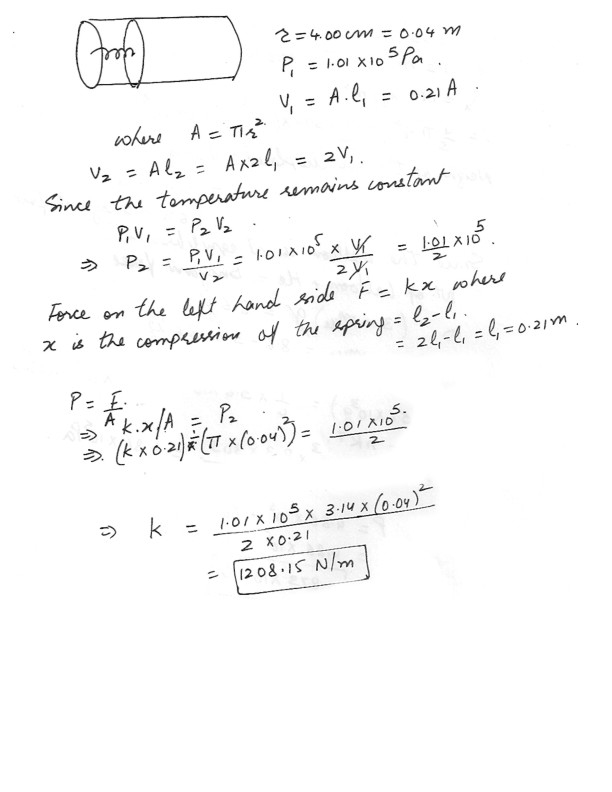 r = 4.00 cm = 0.04 m
P₁ = 1.01 × 10⁵ Pa.
V₁ = A.l₁ = 0.21 A.
where A = πr².
V₂ = Al₂ = A×2l₁ = 2V₁.
Since the temperature remains constant
P₁V₁ = P₂V₂.
⇒ P₂ = P₁V₁/V₂ = 1.01 × 10⁵ × V₁/2V₁ = 1.01/2 × 10⁵.
Force on the left hand side F = kx where
x is the compression of the spring = l₂-l₁.
= 2l₁-l₁ = l₁ = 0.21 m.
P = F/A.
⇒ k.x/A = P₂
⇒. (k × 0.21) ÷ (π × (0.04)²) = 1.01 × 10⁵./2
⇒ k = 1.01 × 10⁵ × 3.14 × (0.04)²/2 × 0.21
= 1208.15 N/m